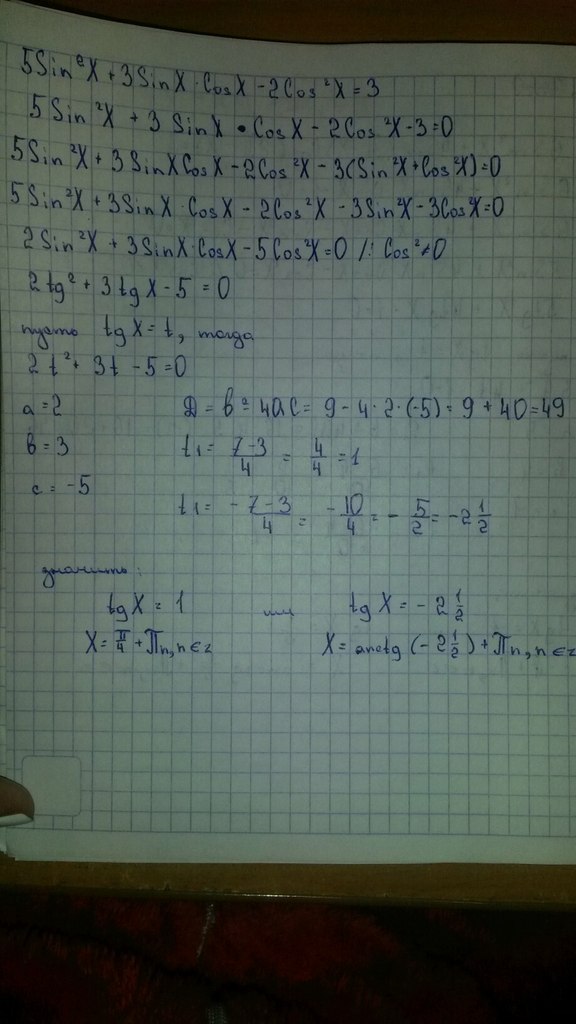 5Sin²X + 3SinX · CosX - 2Cos²X = 3
5Sin²X + 3SinX · CosX - 2Cos²X - 3 = 0
5Sin²X + 3SinXCosX - 2Cos²X - 3(Sin²X + Cos²X) = 0
5Sin²X + 3SinX · CosX - 2Cos²X - 3Sin²X - 3Cos²X = 0
2Sin²X + 3SinX · CosX - 5Cos²X = 0 /: Cos² ≠ 0
2tg² + 3tgX - 5 = 0
пусть tgX = t, тогда
2t² + 3t - 5 = 0
a = 2 D = b² - 4ac = 9 - 4 · 2 · (-5) = 9 + 40 = 49
b = 3 t₁ = (7-3)/4 = 4/4 = 1
c = -5
t₁ = (-7-3)/4 = -10/4 = -5/2 = -2 1/2
значить:
tgX = 1 или tgX = -2 1/2
X = π/4 + πn, n ∈ z X = arctg(-2 1/2) + πn, n ∈ z